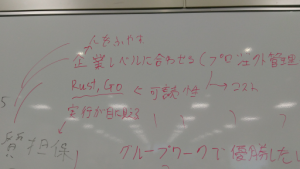 人をふやす
企業レベルに合わせる(プロジェクト管理
Rust, Go < 可読性 → コスト
実行が目に
質担保
グループワークで優勝した